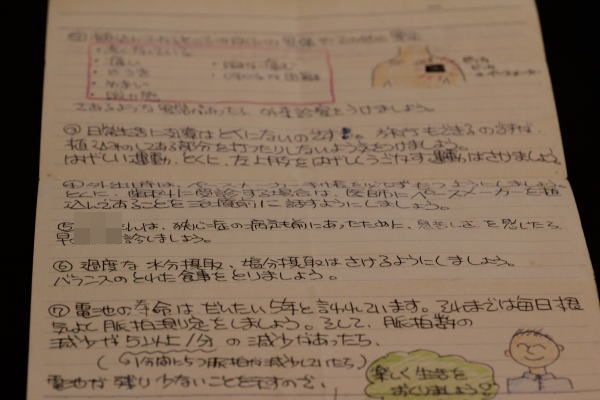 ・痛い
・めまい
であるような症状があったら、外来診察をうけましょう。
③ 日常生活に支障はとくにないのです。旅行もできるのですが、
植え込みのしてある部分を打ったりしないよう気をつけましょう。
はげしい運動、とくに、左上肢をはげしくうごかす運動はさけましょう。
とくに、歯科に受診する場合は、医師にペースメーカーを植え
込んであることを治療前に話すようにしましょう。
⑤ さんは、狭心症の病気も前にあったために、息苦しさを感じたら、
早 診しましょう。
⑥ 過度な水分摂取、塩分摂取はさけるようにしましょう。
バランスのとれた食事をとりましょう。
⑦ 電池の寿命はだいたい5年と言われています。それまでは毎日根
気よく脈拍測定をしましょう。そして、脈拍数の
減少が5以上/分の減少があったら、
(1分間に5つ脈拍が減少していたら)
電池が残り少ないことを示すので、
楽しく生活を
おくりましょう?